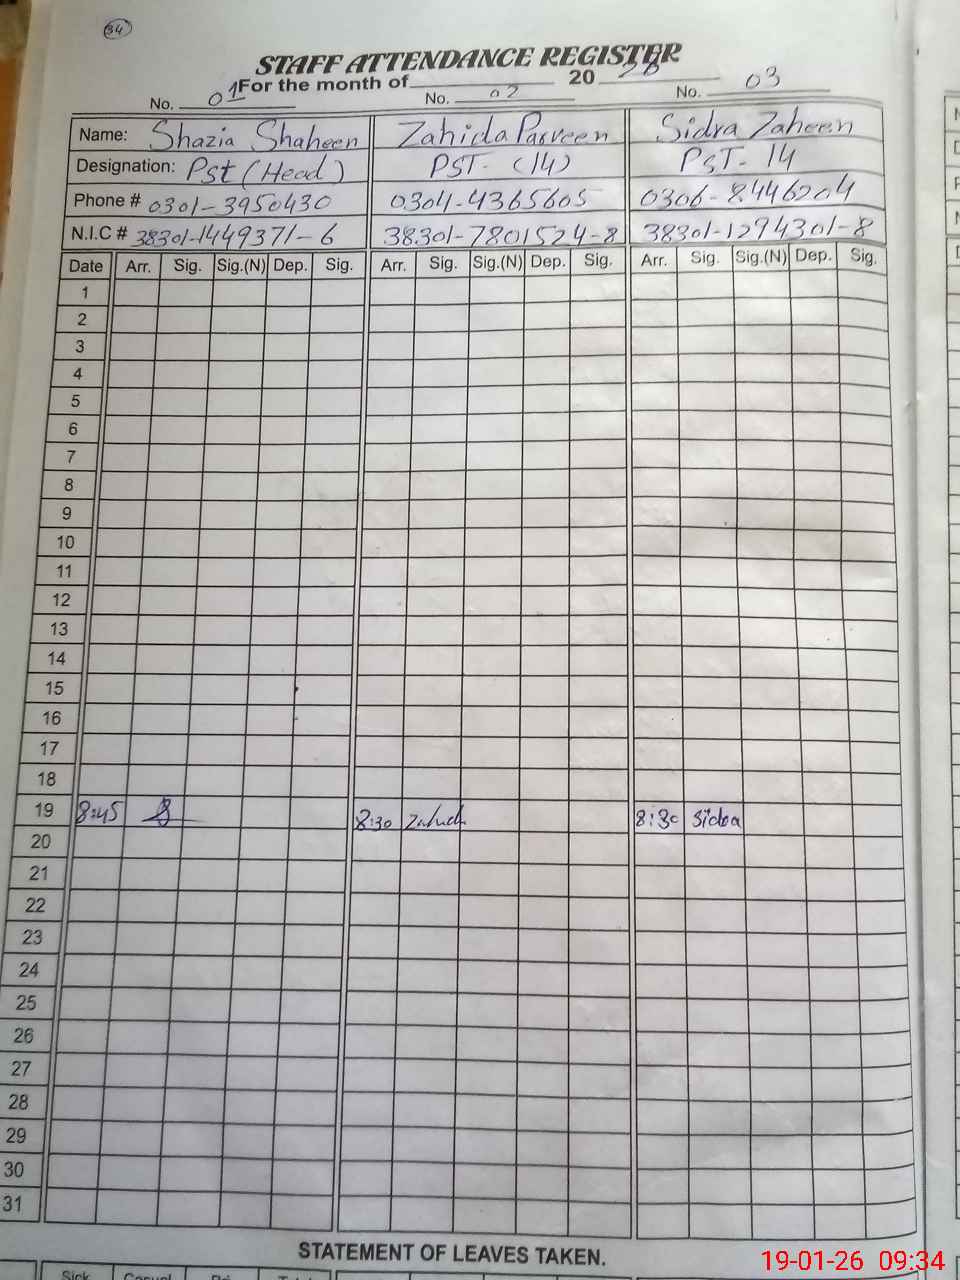 34
STAFF ATTENDANCE REGISTER
For the month of 20 26
No. 01 No. 02 No. 03
Name: Shazia Shaheen Zahida Parveen Sidra Zaheen
Designation: Pst (Head) PST. (14) PST- 14
Phone # 0301-3950430 0304-4365605 0306-8446204
N.I.C # 38301-1449371-6 38301-7801524-8 38301-1294301-8
Date Arr. Sig. Sig.(N) Dep. Sig. Arr. Sig. Sig.(N) Dep. Sig. Arr. Sig. Sig.(N) Dep. Sig.
1
2
3
4
5
6
7
8
9
10
11
12
13
14
15
16
17
18
19 8:45 8:30 8:30 Sidra
20
21
22
23
24
25
26
27
28
29
30
31
STATEMENT OF LEAVES TAKEN.
Sick Casual
19-01-26 09:34